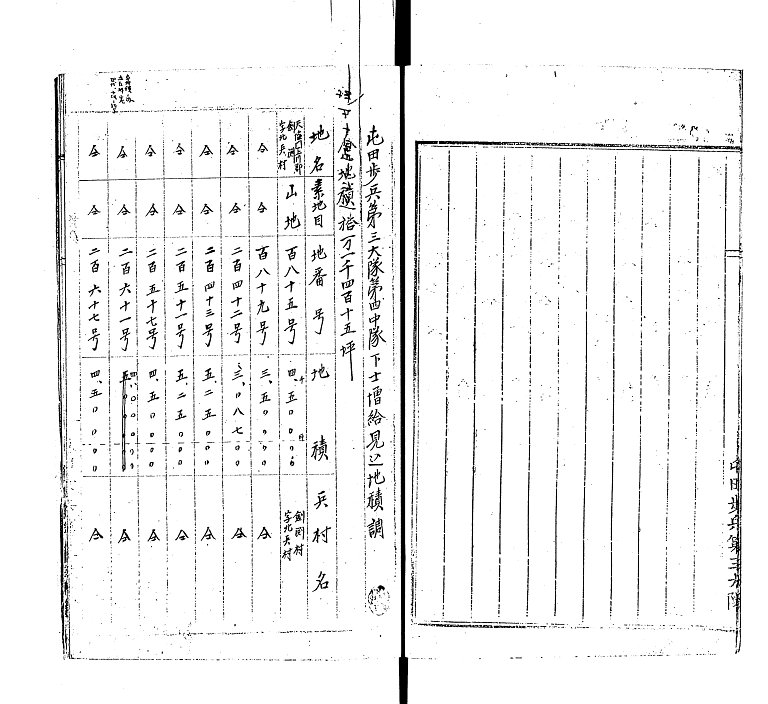 屯田歩兵第三大隊
屯田歩兵第三大隊第四中隊下士増給見込地積調
地積拾万一千四百十五坪
地名 素地目 地番号 地積 兵村名
剣渕 字北兵村 山地 百八十五号 四、五〇〇〇〇 剣渕村 字北兵村
仝 仝 百八十九号 三、五〇〇〇〇 仝
仝 仝 二百四十二号 三、〇八七〇〇 仝
仝 仝 二百四十三号 五、二五〇〇〇 仝
仝 仝 二百五十一号 五、二五〇〇〇 仝
仝 仝 二百五十七号 四、五〇〇〇〇 仝
仝 仝 二百六十一号 四、〇〇〇〇〇 仝
仝 仝 二百六十七号 四、五〇〇〇〇 仝